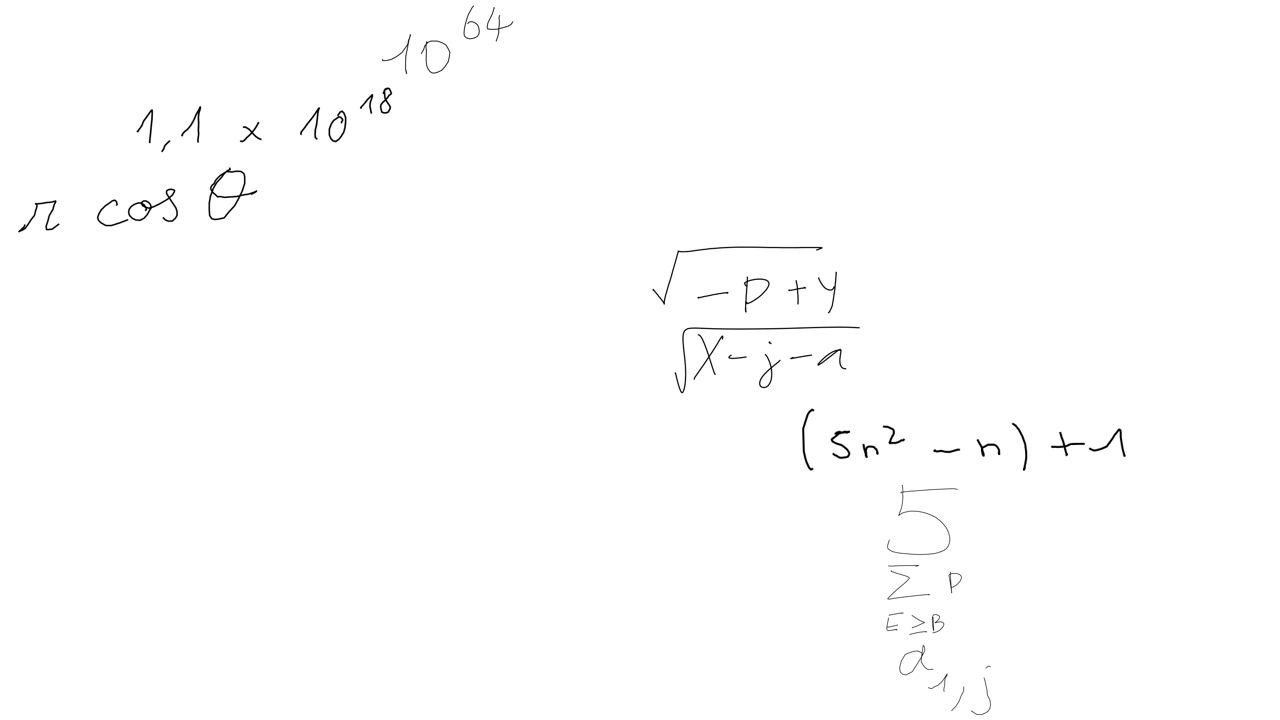 10^{64}
1,1 × 10^{18}
r cos θ
√(-p+y)
√(X-j-a)
(5n² - n) + 1
5
∑_{E≥B} p
a_{1,j}